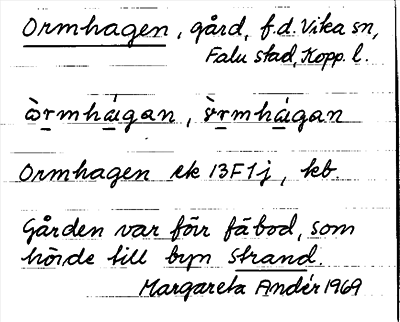 Ormhagen, gård, f.d. Vika sn,
Falu stad, Kopp. l.
Ormhagen ek 13F1j, kb.
Gården var förr fäbod, som
hörde till byn Strand.
Margareta Andér 1969